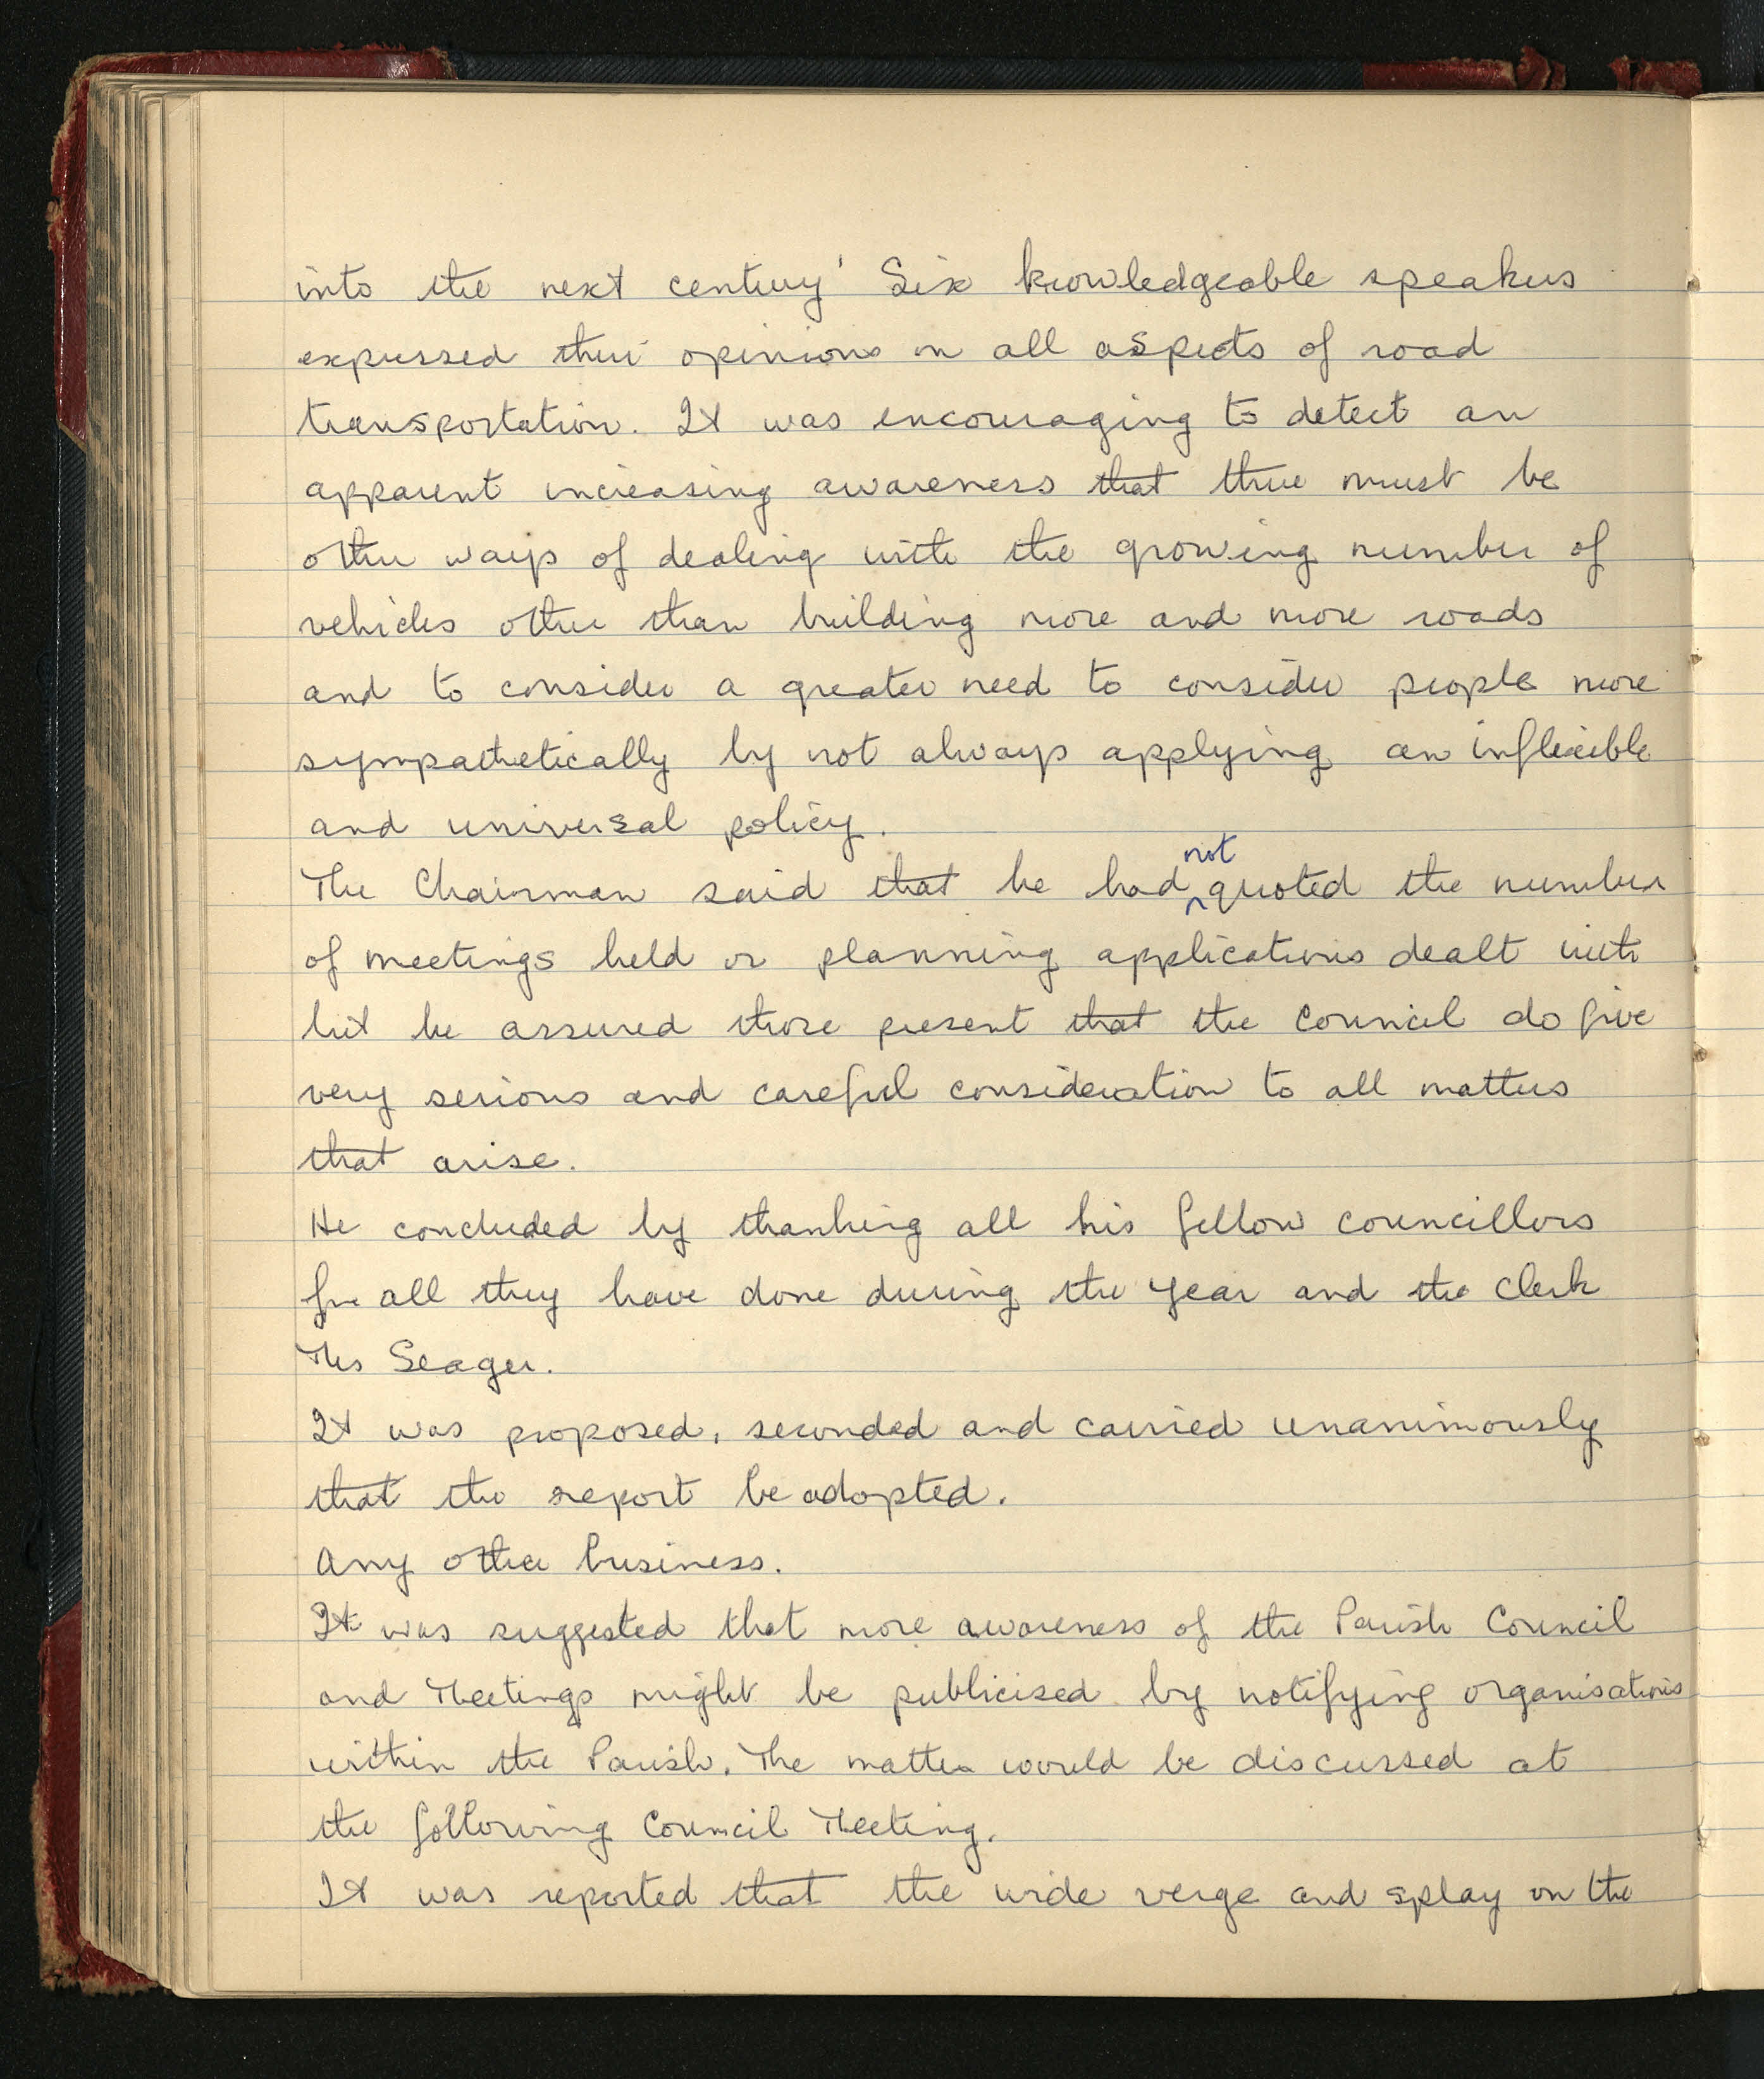 into the next century' Six knowledgeable speakers
expressed their opinions on all aspects of road
transportation. It was encouraging to detect an
apparent increasing awareness that there must be
other ways of dealing with the growing number of
vehicles other than building more and more roads
and to consider a greater need to consider people more
sympathetically by not always applying an inflexible
and universal policy.
The Chairman said that he had not quoted the number
of meetings held or planning applications dealt with
but he assured those present that the Council do give
very serious and careful consideration to all matters
that arise.
He concluded by thanking all his fellow councillors
for all they have done during the year and the Clerk
Mrs Seager.
It was proposed, seconded and carried unanimously
that the report be adopted.
Any other business.
It was suggested that more awareness of the Parish Council
and Meetings might be publicised by notifying organisations
within the Parish. The matter would be discussed at
the following Council Meeting.
It was reported that the wide verge and splay on the